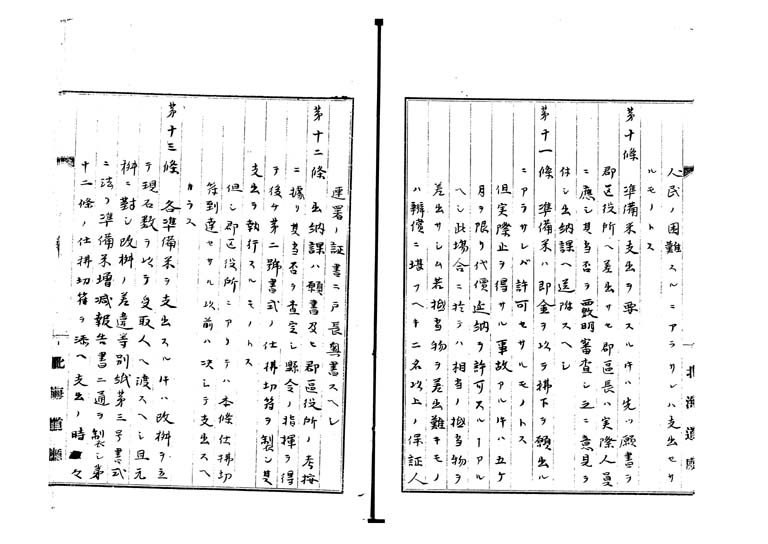 人民ノ困難スルニアラサレハ支出セサ
ルモノトス
第十條 準備米支出ヲ要スルトキハ先ツ願書ヲ
郡区役所ヘ差出サセ郡区長ハ実際人員
ニ應シ其当否ヲ覈明審査シ之ニ意見ヲ
付シ出納課ヘ送附スヘシ
第十一條 準備米ハ即金ヲ以テ拂下ヲ願出ル
ニアラサレバ許可セサルモノトス
但実際止ヲ得サル事故アルトキハ五ケ
月ヲ限リ代價延納ヲ許可スルコアル
ヘシ此場合ニ於テハ相当ノ抵当物ヲ
差出サシム若抵当物ヲ差出難キモノ
ハ辨償ニ堪フヘキ二名以上ノ保証人
北海道廳
連署ノ証書ニ戸長奥書スヘシ
第十二條 出納課ハ願書及ヒ郡区役所ノ考按
ニ據リ其当否ヲ査定シ縣令ノ指揮ヲ得
テ後チ第二號書式ノ仕拂切符ヲ製シ其
支出ヲ執行スルモノトス
但シ郡区役所ニアリテハ本條仕拂切
符到達セサル以前ハ決シテ支出スヘ
カラス
第十三條 各準備米ヲ支出スルトキハ改桝ヲ立
テ現石数ヲ以テ受取人ヘ渡スヘシ且元
桝ニ対シ改桝ノ差違等別紙第三号書式
ニ法リ準備米増減報告書二通ヲ製シ第
十二條ノ仕拂切符ヲ添ヘ支出ノ時々
北海道廳